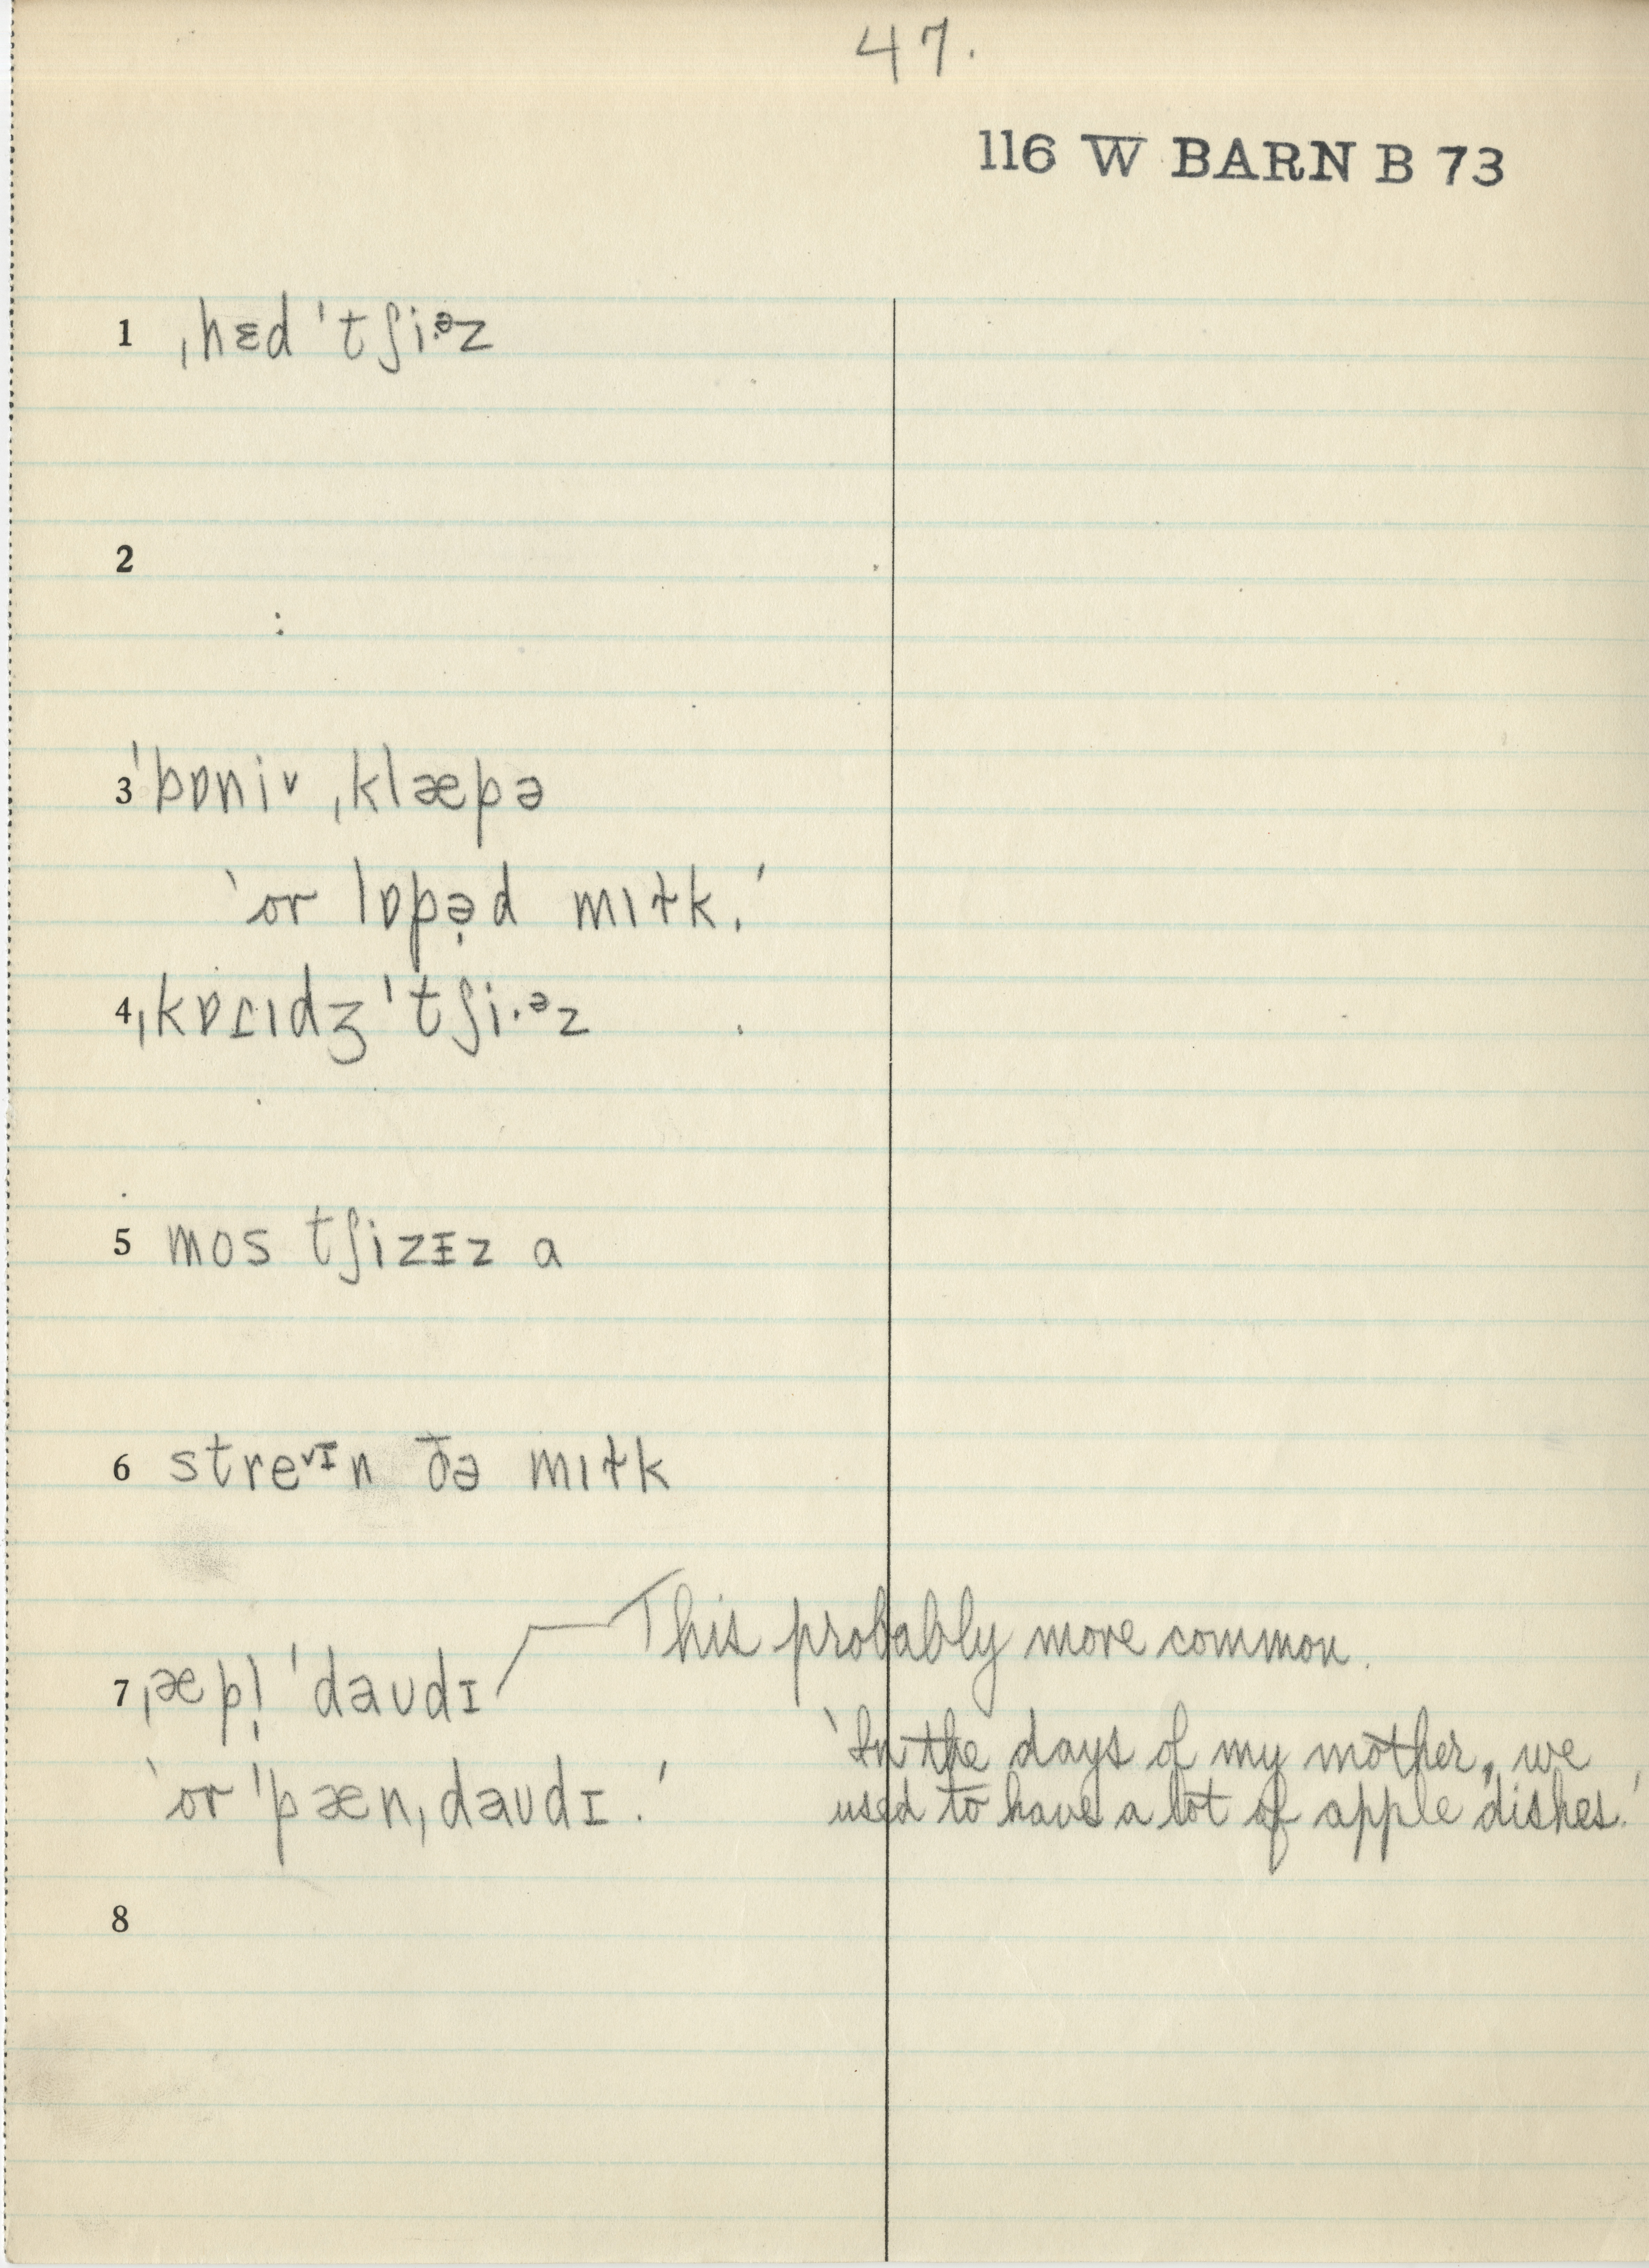 47.
116 W BARN B 73
1 ˌhɛd ˈtʃi·ᵊz
2
3 ˈbɒniᵛ ˌklæpə
‵or lɒpə̣d mɪɫk.′
4 ˌkɒɾɪdʒ ˈtʃi·ᵊz
5 mos tʃizɪz a
6 streᵛᶦn ðə mɪɫk
This probably more common.
7 ˌæpl̩ ˈdaʊdɪ
‵In the days of my mother, we
‵or ˈpænˌdaʊdɪ.′ used to have a lot of apple dishes.′
8